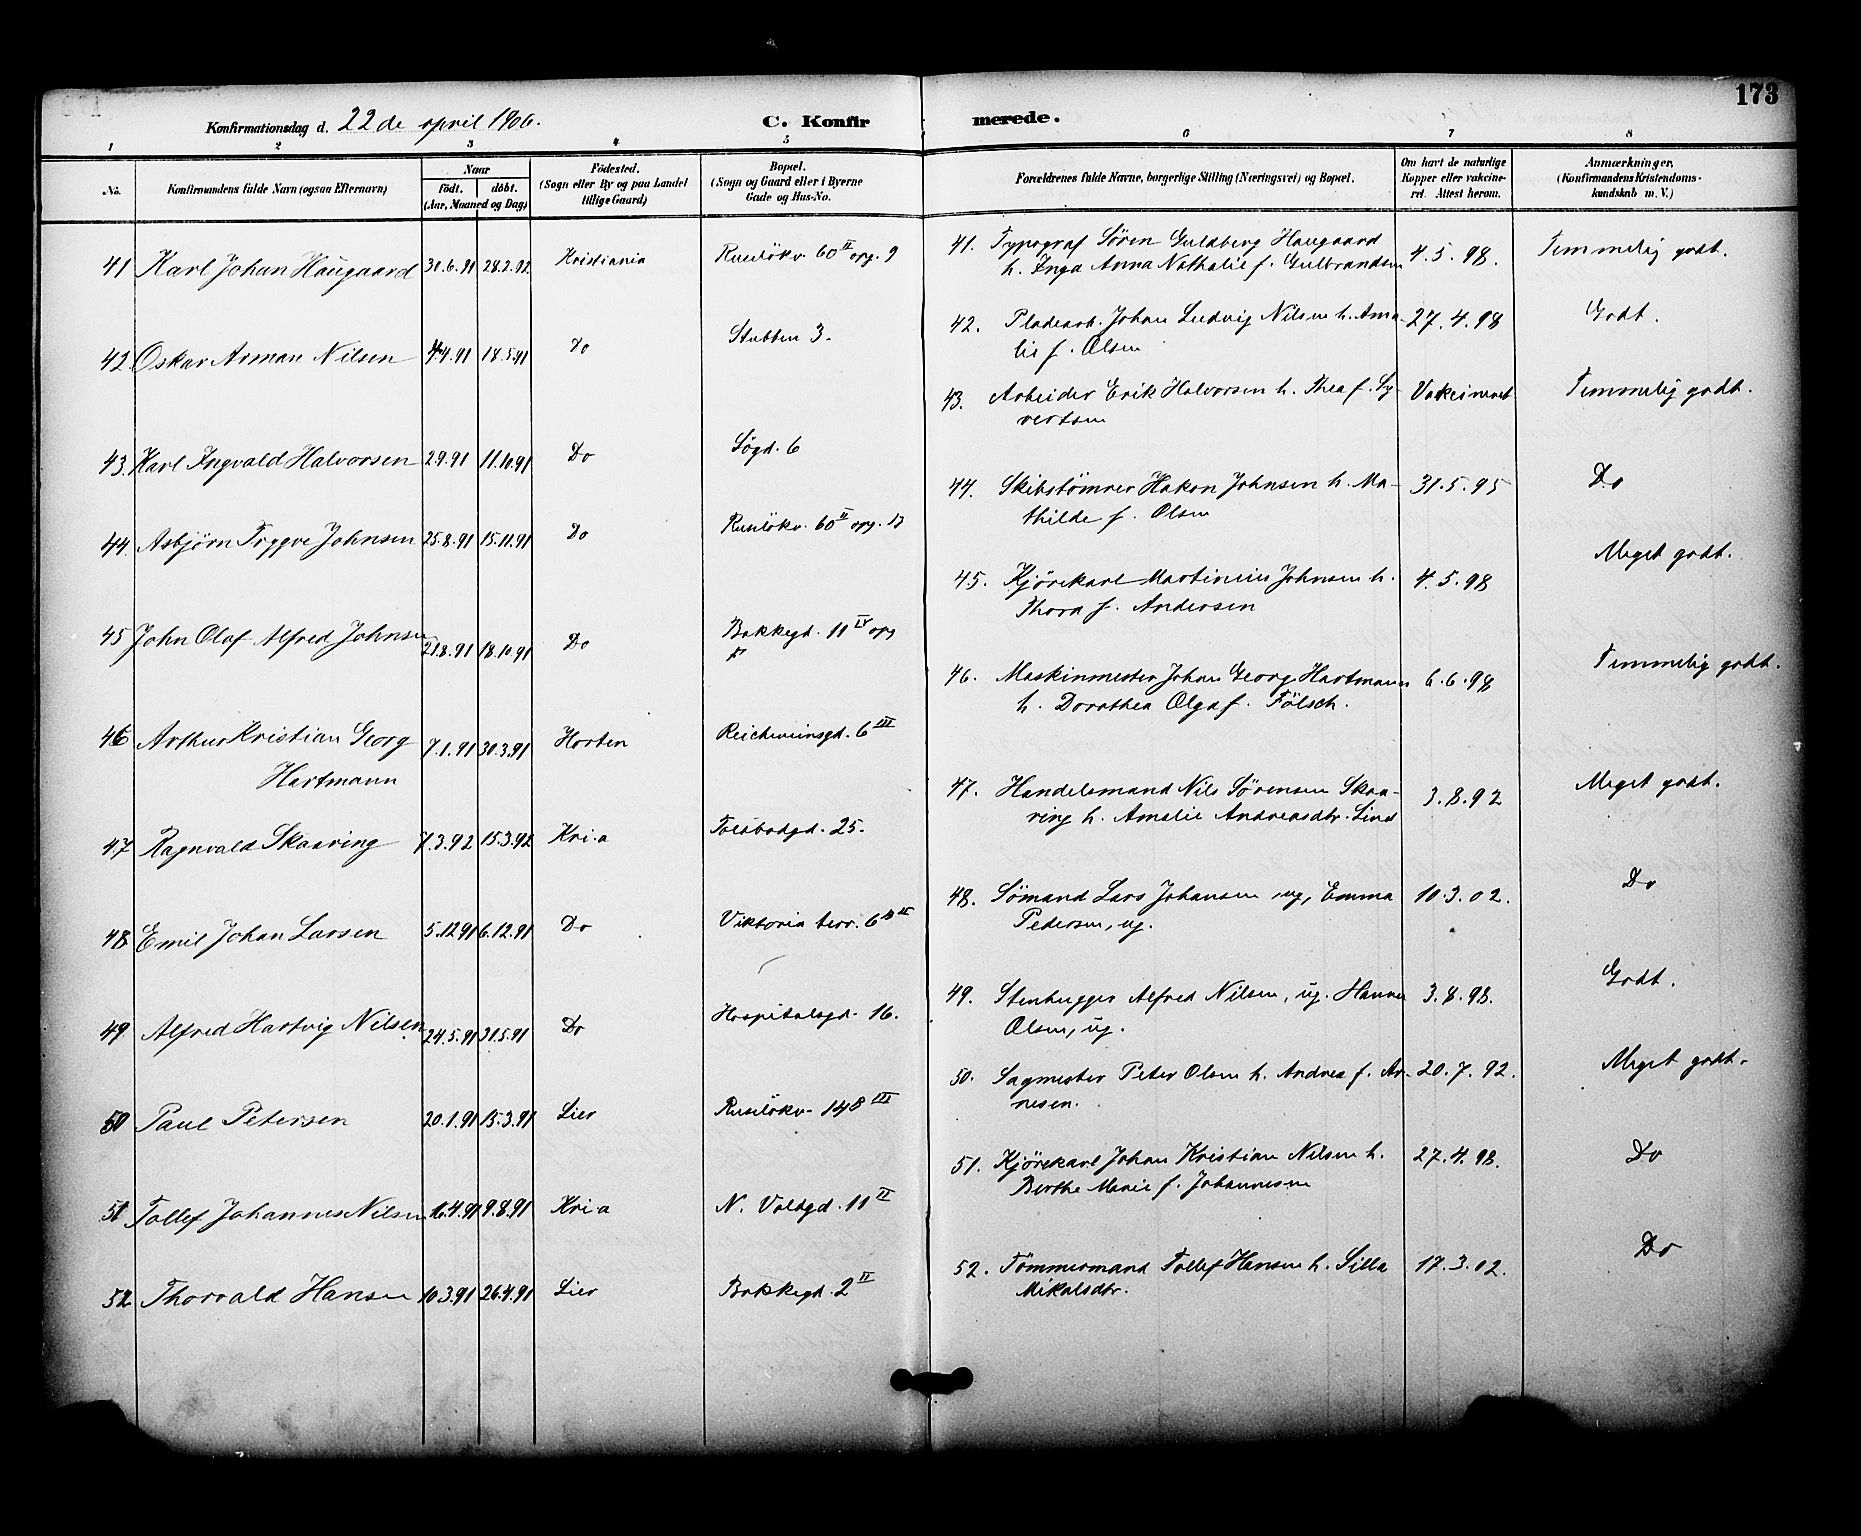 173
Konfirmationsdag d. 22 de april 1906.
C. Konfirmerede.
1 2 3 4 5 6 7 8
No.
Konfirmandens fulde Navn (ogsaa Efternavn)
Naar
født. døbt.
(Aar, Maaned og Dag)
Fødested.
(Sogn eller By og paa Landet
tillige Gaard)
Bopæl.
(Sogn og Gaard eller i Byerne
Gade og Hus-No.
Forældrenes fulde Navne, borgerlige Stilling (Næringsvei) og Bopæl.
Om havt de naturlige
Kopper eller vakcine-
ret. Attest herom.
Anmærkninger.
(Konfirmandens Kristendoms-
kundskab m. V.)
41 Karl Johan Haugaard 28.2.92 Kristiania Ruseløkv. 60 II opg. 9
41. Typograf Søren Guldberg Haugaard 4.5.98. Temmelig godt.
h. Inga Anna Nathalie f. Gulbrandsen
42. Oskar Arman Nilsen 4.4.91 18.5.91 Do Stubben 3.
42. Pladearb. Johan Ludvig Nilsen h. Ama- 27.4.98 Godt.
lie f. Olsen
43. Karl Ingvald Halvorsen 2.9.91 11.10.91 Do Søgd. 6
43. Arbeider Erik Halvorsen h. Thea f. Sy- Vakcineret Temmelig godt.
vertsen
44. Asbjørn Trygve Johnsen 25.8.91 15.11.91 Do Ruseløkv. 60 II opg.
44. Skibstømrer Hakon Johnsen h. Ma- 31.5.95 Do
thilde f. Olsen
45 John Olaf Alfred Johnsen 21.8.91 18.10.91 Do Bakkegd. 11 IV opg
45. Kjørekarl Martinius Johnsen h. 4.5.98 Meget godt.
Thora f. Andersen
46 Arthur Kristian Georg 7.1.91 30.3.91 Horten Reichweinsgd. 6 III
Hartmann
46. Maskinmester Johan Georg Hartmann 6.6.98 Temmelig godt.
h. Dorothea Olga f. Fölsch.
47 Ragnvald Skaaring 7.3.92 15.3.92 Kri.a Toldbodgd. 25.
47. Handelsmand Nils Sørensen Skaa- 3.8.92 Meget godt.
ring h. Amalie Andreasdtr. Lind
48 Emil Johan Larsen 5.12.91 6.12.91 Do Viktoria terr. 6
48. Sømand Lars Johansen, ug, Emma 10.3.02. Do
Petersen, ug.
49 Alfred Hartvig Nilsen 24.5.91 31.5.91 Do Hospitalsgd. 16.
49. Stenhugger Alfred Nilsen, ug. Hanna 3.8.98. Godt.
Olsen, ug.
50 Paul Petersen 20.1.91 15.3.91 Lier Ruseløkv. 148 III
50. Sagmester Peter Olsen h. Andrea f. Ar- 20.7.92. Meget godt.
nesen.
51 Tollef Johannes Nilsen 16.4.91 9.8.91 Kri.a N. Voldgd. 11 II
51. Kjørekarl Johan Kristian Nilsen h. 27.4.98. Do
Berthe Marie f. Johannesen
52 Thorvald Hansen 10.3.91 26.4.91 Lier Bakkegd. 2 II
52. Tømmermand Tollef Hansen h. Silla 17.3.02. Do
Mikalsdtr.